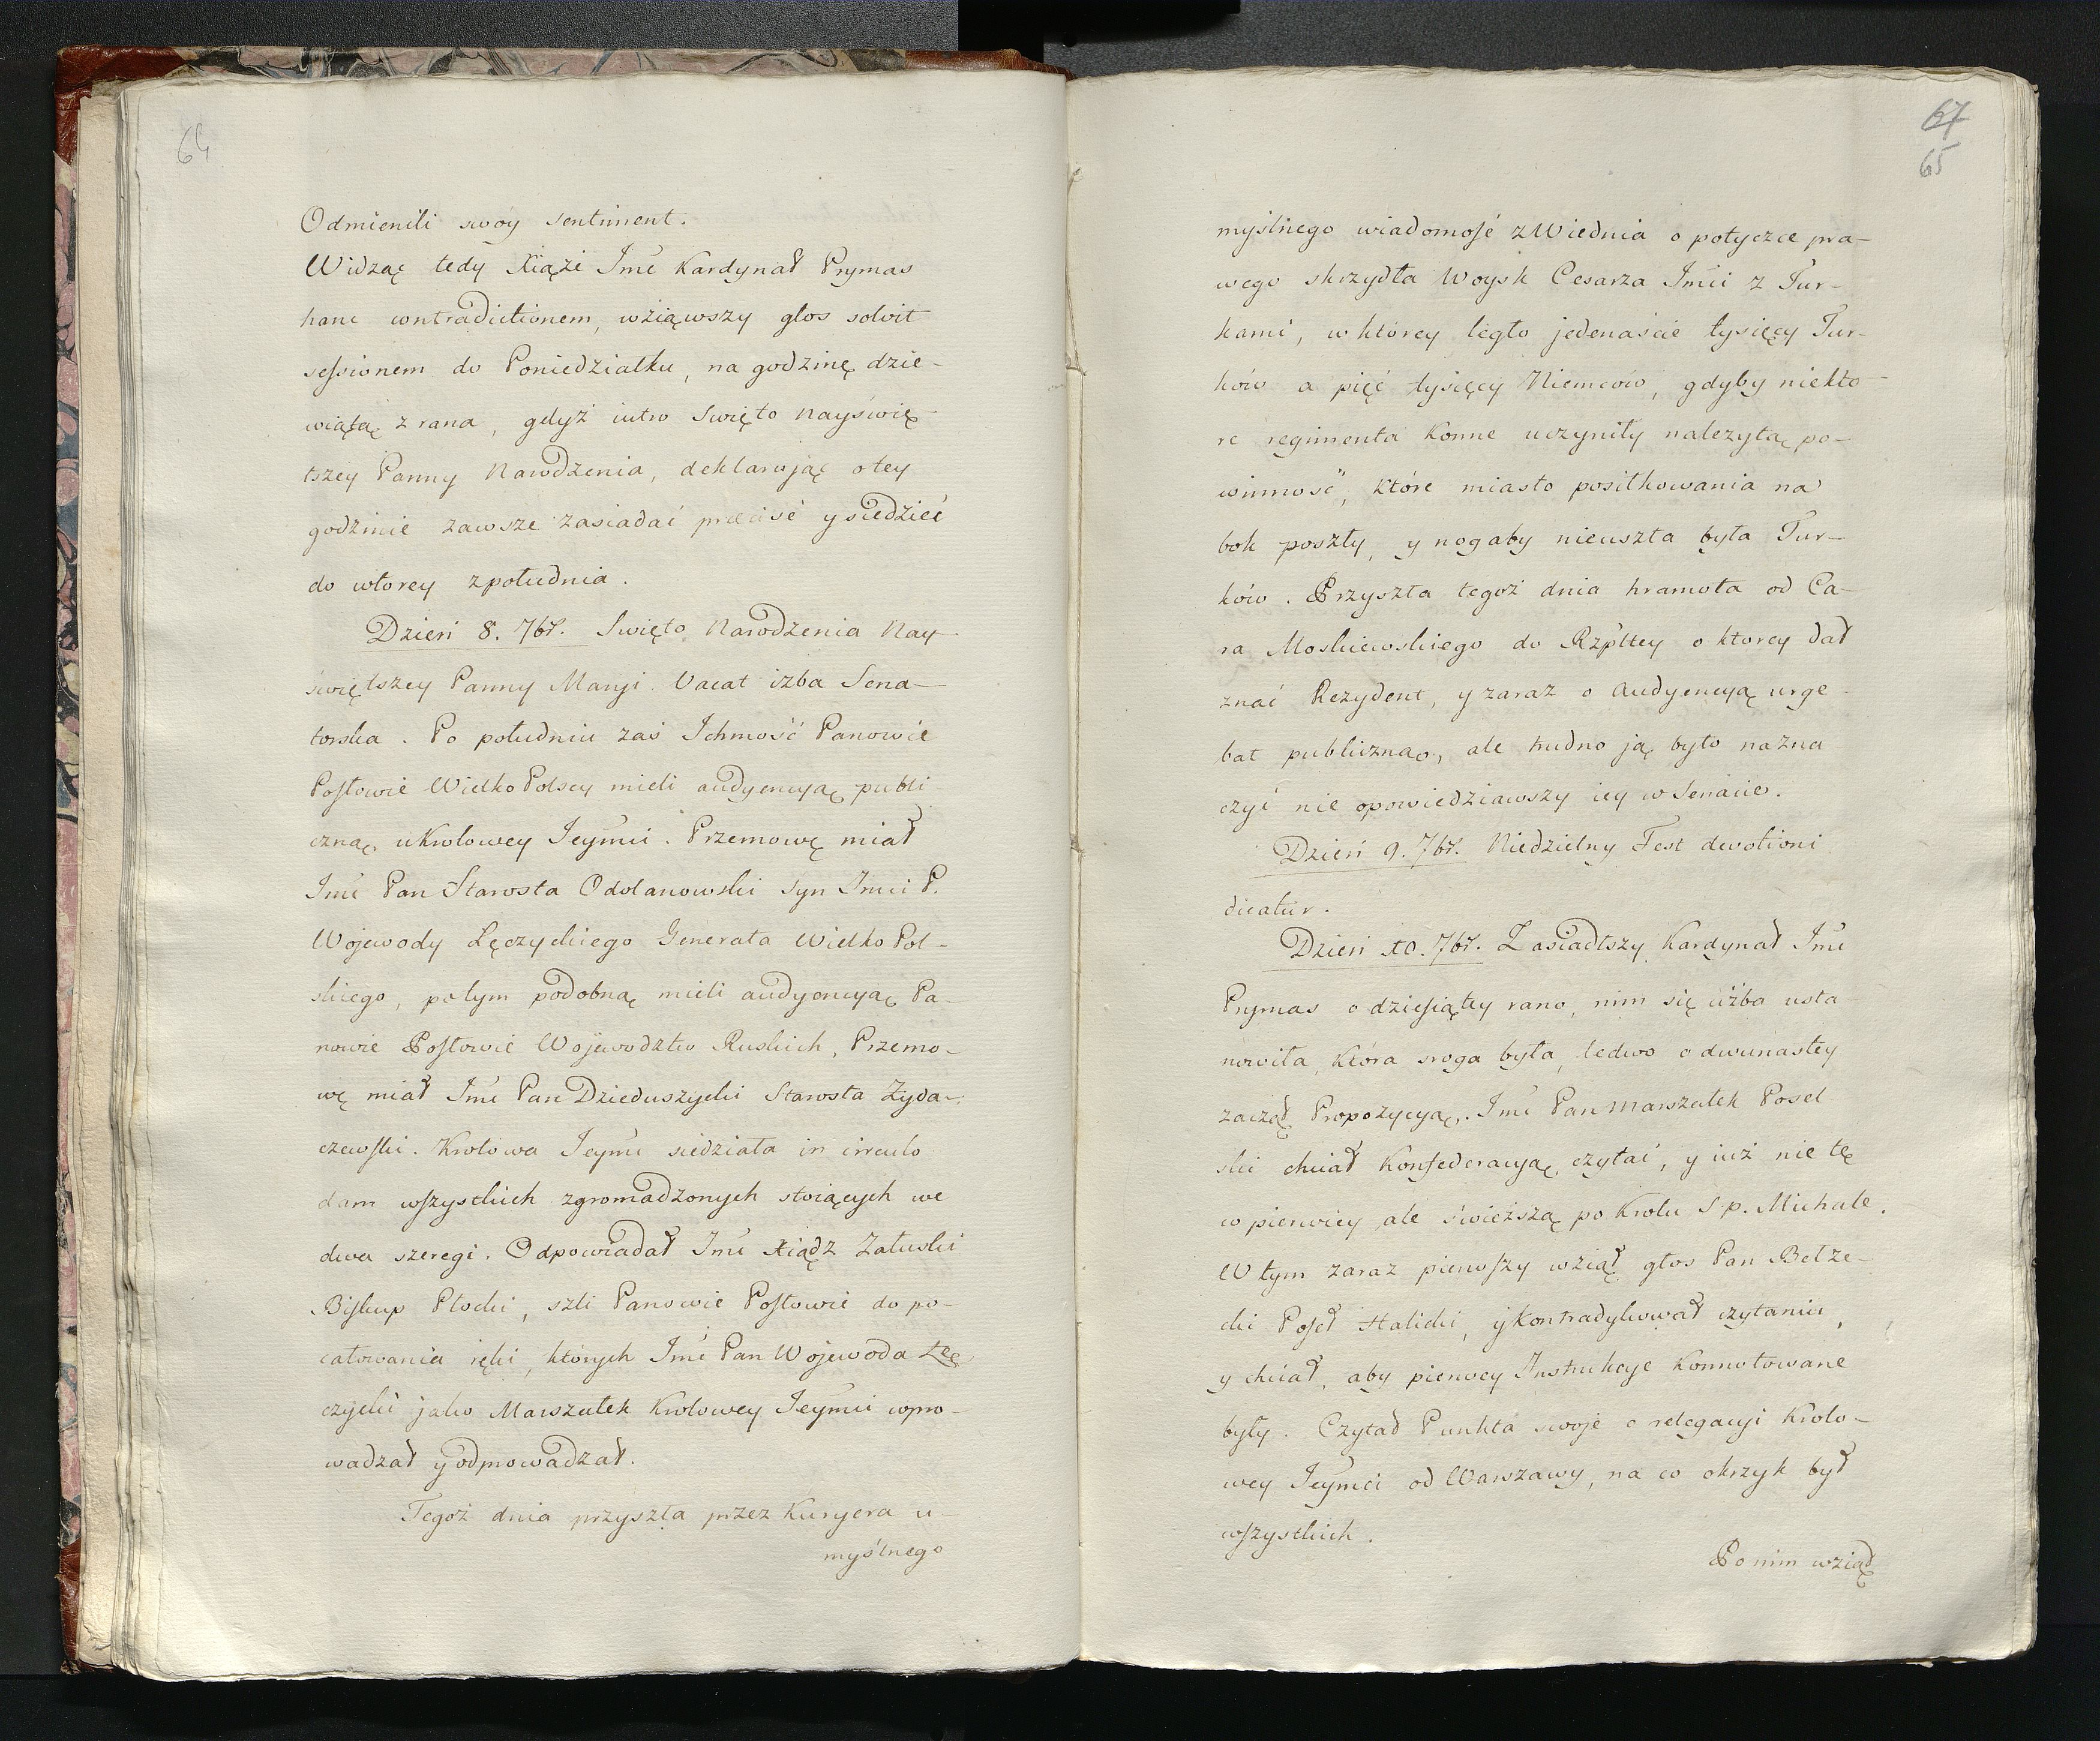 64
Odmienili swóy sentiment.
Widząc tedy Xiąże Jmć Kardynał Prymas
hanc contradictionem, wziąwszy głos solvit
seſsionem do Poniedziałku, na godzinę dzie-
wiątą z rana, gdyż iutro Swięto Nayświę-
tszey Panny Narodzenia, deklarując o tey
godzinie zawsze zasiadać præcisè y siedzieć
do wtorey zpołudnia.
Dzień 8. 7br. Swięto Narodzenia Nay-
świętszey Panny Maryi. Vacat izba Sena-
torska. Po południu zaś Ichmość Panowie
Poſłowie WielkoPolscy mieli audyencyą publi
czną, u Krolowey Jeymci. Przemowę miał
Jmć Pan Starosta Odolanowski syn Jmci P.
Wojewody Łęczyckiego Generała WielkoPol-
skiego, potym podobną mieli audyencyą Pa-
nowie Poſłowie Wojewodztw Ruskich, Przemo-
wę miał Jmć Pan Dzieduszycki Starosta Żyda-
czewſki. Krolowa Jeymć siedziała in circulo
dam wſzystkich zgromadzonych stoiących we
dwa szeregi. Odpowiadał Jmć Xiądz Załuski
Biſkup Płocki, szli Panowie Poſłowie do po-
całowania ręki, których Jmć Pan Wojewoda Łę-
czycki jako Marszałek Krolowey Jeymci wpro-
wadzał y odprowadzał.
Tegoż dnia przyszła przez Kuryera u-
myślnego
67
65
myślnego wiadomoſć z Wiednia o potyczce pra-
wego skrzydła Woysk Cesarza Jmci z Tur-
kami, w którey legło jedenaście tysięcy Tur-
ków a pięć tysięcy Niemców, gdyby niektó-
re regimenta Konne uczyniły należytą po-
winność, które miasto posiłkowania na
bok poszły, y nogaby nieuszła była Tur-
ków. Przyszła tegoż dnia hramota od Ca-
ra Moskiewskiego do Rzpłtey o ktorey dał
znać Rezydent, y zaraz o audyencyą urge-
bat publiczną, ale trudno ją było nazna
czyć nie opowiedziawszy iey w Senacie.
Dzień 9. 7br. Niedzielny Fest devotioni
dicatur.
Dzień 10. 7br. Zasiadłszy Kardynał Jmć
Prymas o dzieſiątey rano, nim się ciżba usta-
nowiła, która sroga była, ledwo o dwunastey
zaczął Propozycyą. Jmć Pan Marszałek Posel
ski chciał Konfederacyą czytać, y iuż nie tę
co pierwiey ale świeższą po Krolu S.p. Michale.
W tym zaraz pierwſzy wziął głos Pan Bełże-
cki Poſeł Halicki, y kontradykował czytaniu,
y chciał, aby pierwey Instrukcye Konnotowane
były. Czytał Punkta swoje o relegacyi Krolo-
wey Jeymci od Warszawy, na co okrzyk był
wſzystkich.
Po nim wziął